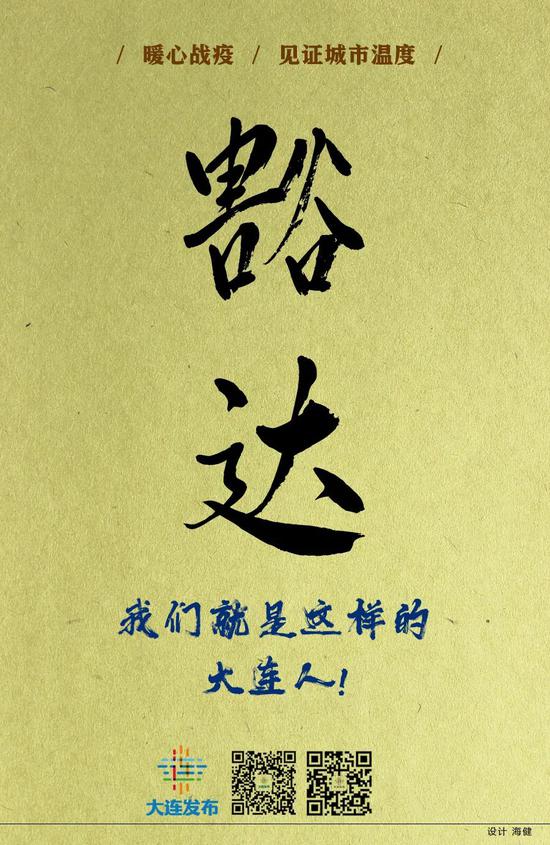 / 暖心战疫 / 见证城市温度 /
豁
达
我们就是这样的
大连人!
大连发布
设计 海健